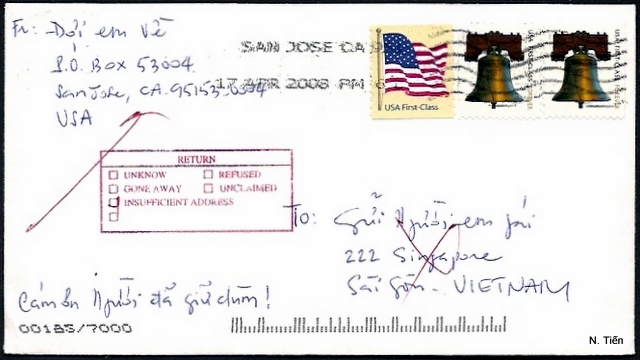 Fr: Đợi em về
P.O. BOX 53004
San Jose, CA. 95153-0004
USA
SAN JOSE CA
17 APR 2008 PM
USA First-Class
RETURN
UNKNOW
REFUSED
GONE AWAY
UNCLAIMED
INSUFFICIENT ADDRESS
To: Gửi Người em gái
222 Singapore
Sài Gòn - VIETNAM
Cám ơn Người đã giữ dùm!
00185/7000
N. Tiến